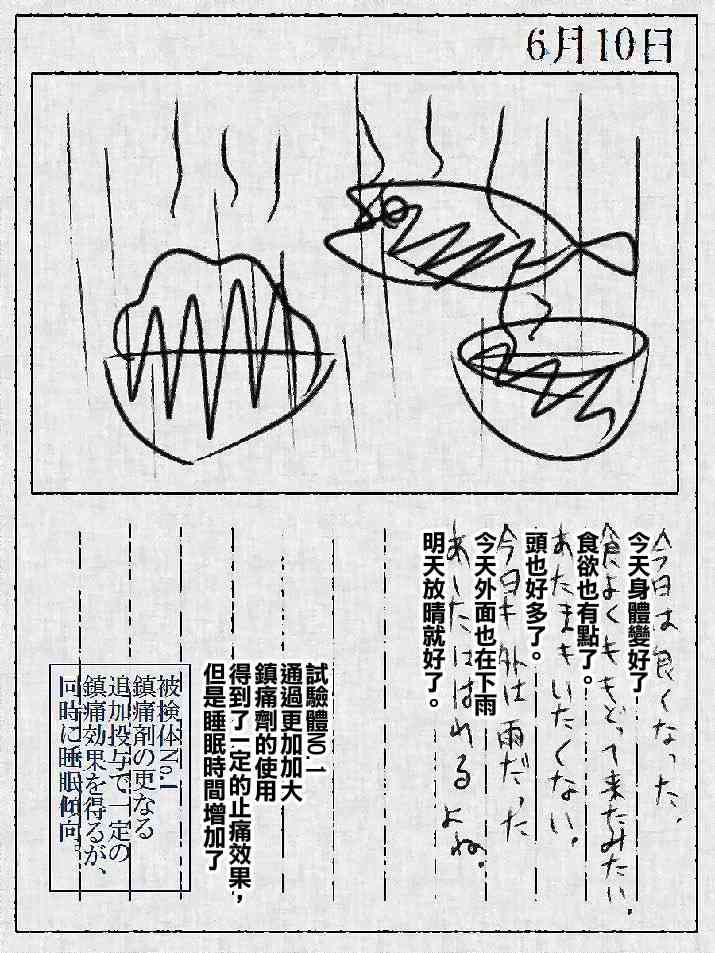 6月10日
今日は良くなった。
今天身體變好了
食よくももどって来たみたい。
食欲也有點了。
あたまもいたくない。
頭也好多了。
今日も外は雨だった
今天外面也在下雨
あしたははれるよね。
明天放晴就好了。
試驗體NO.一
通過更加加大
鎮痛劑的使用
得到了一定的止痛效果，
但是睡眠時間增加了
被検体No.1
鎮痛剤の更なる
追加投与で一定の
鎮痛効果を得るが、
同時に睡眠傾向。